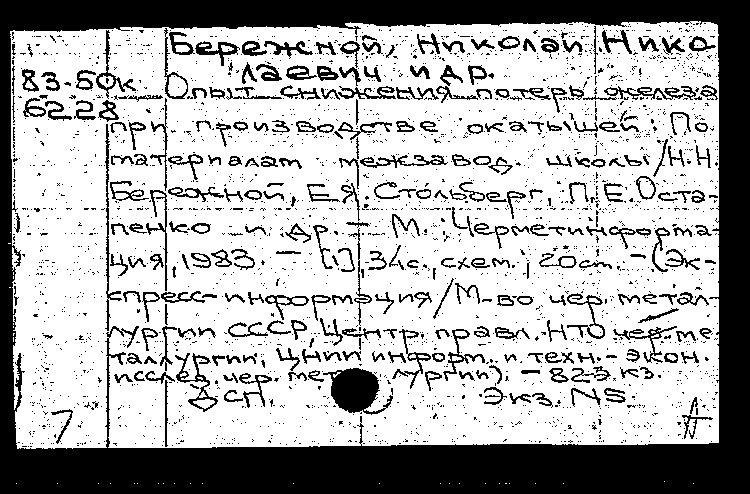 Бережной, Николай Нико
лаевич и др.
83-50к
6228
Опыт снижения потерь железа
при производстве окатышей: По
материалам межзавод. школы/Н.Н.
Бережной, Е.Я. Стольберг, П.Е. Оста-
пенко и др. – М.: Черметинформа-
ция, 1983. – [1], 34с., схем.; 20см. – (Эк-
спресс-информация/М-во чер. метал-
лургии СССР, Центр. правл. НТО чер. ме-
таллургии, ЦНИИ информ. и техн.-экон.
исслед. чер. мет лургии). – 82 экз.
ДСП. Экз. №5.
7